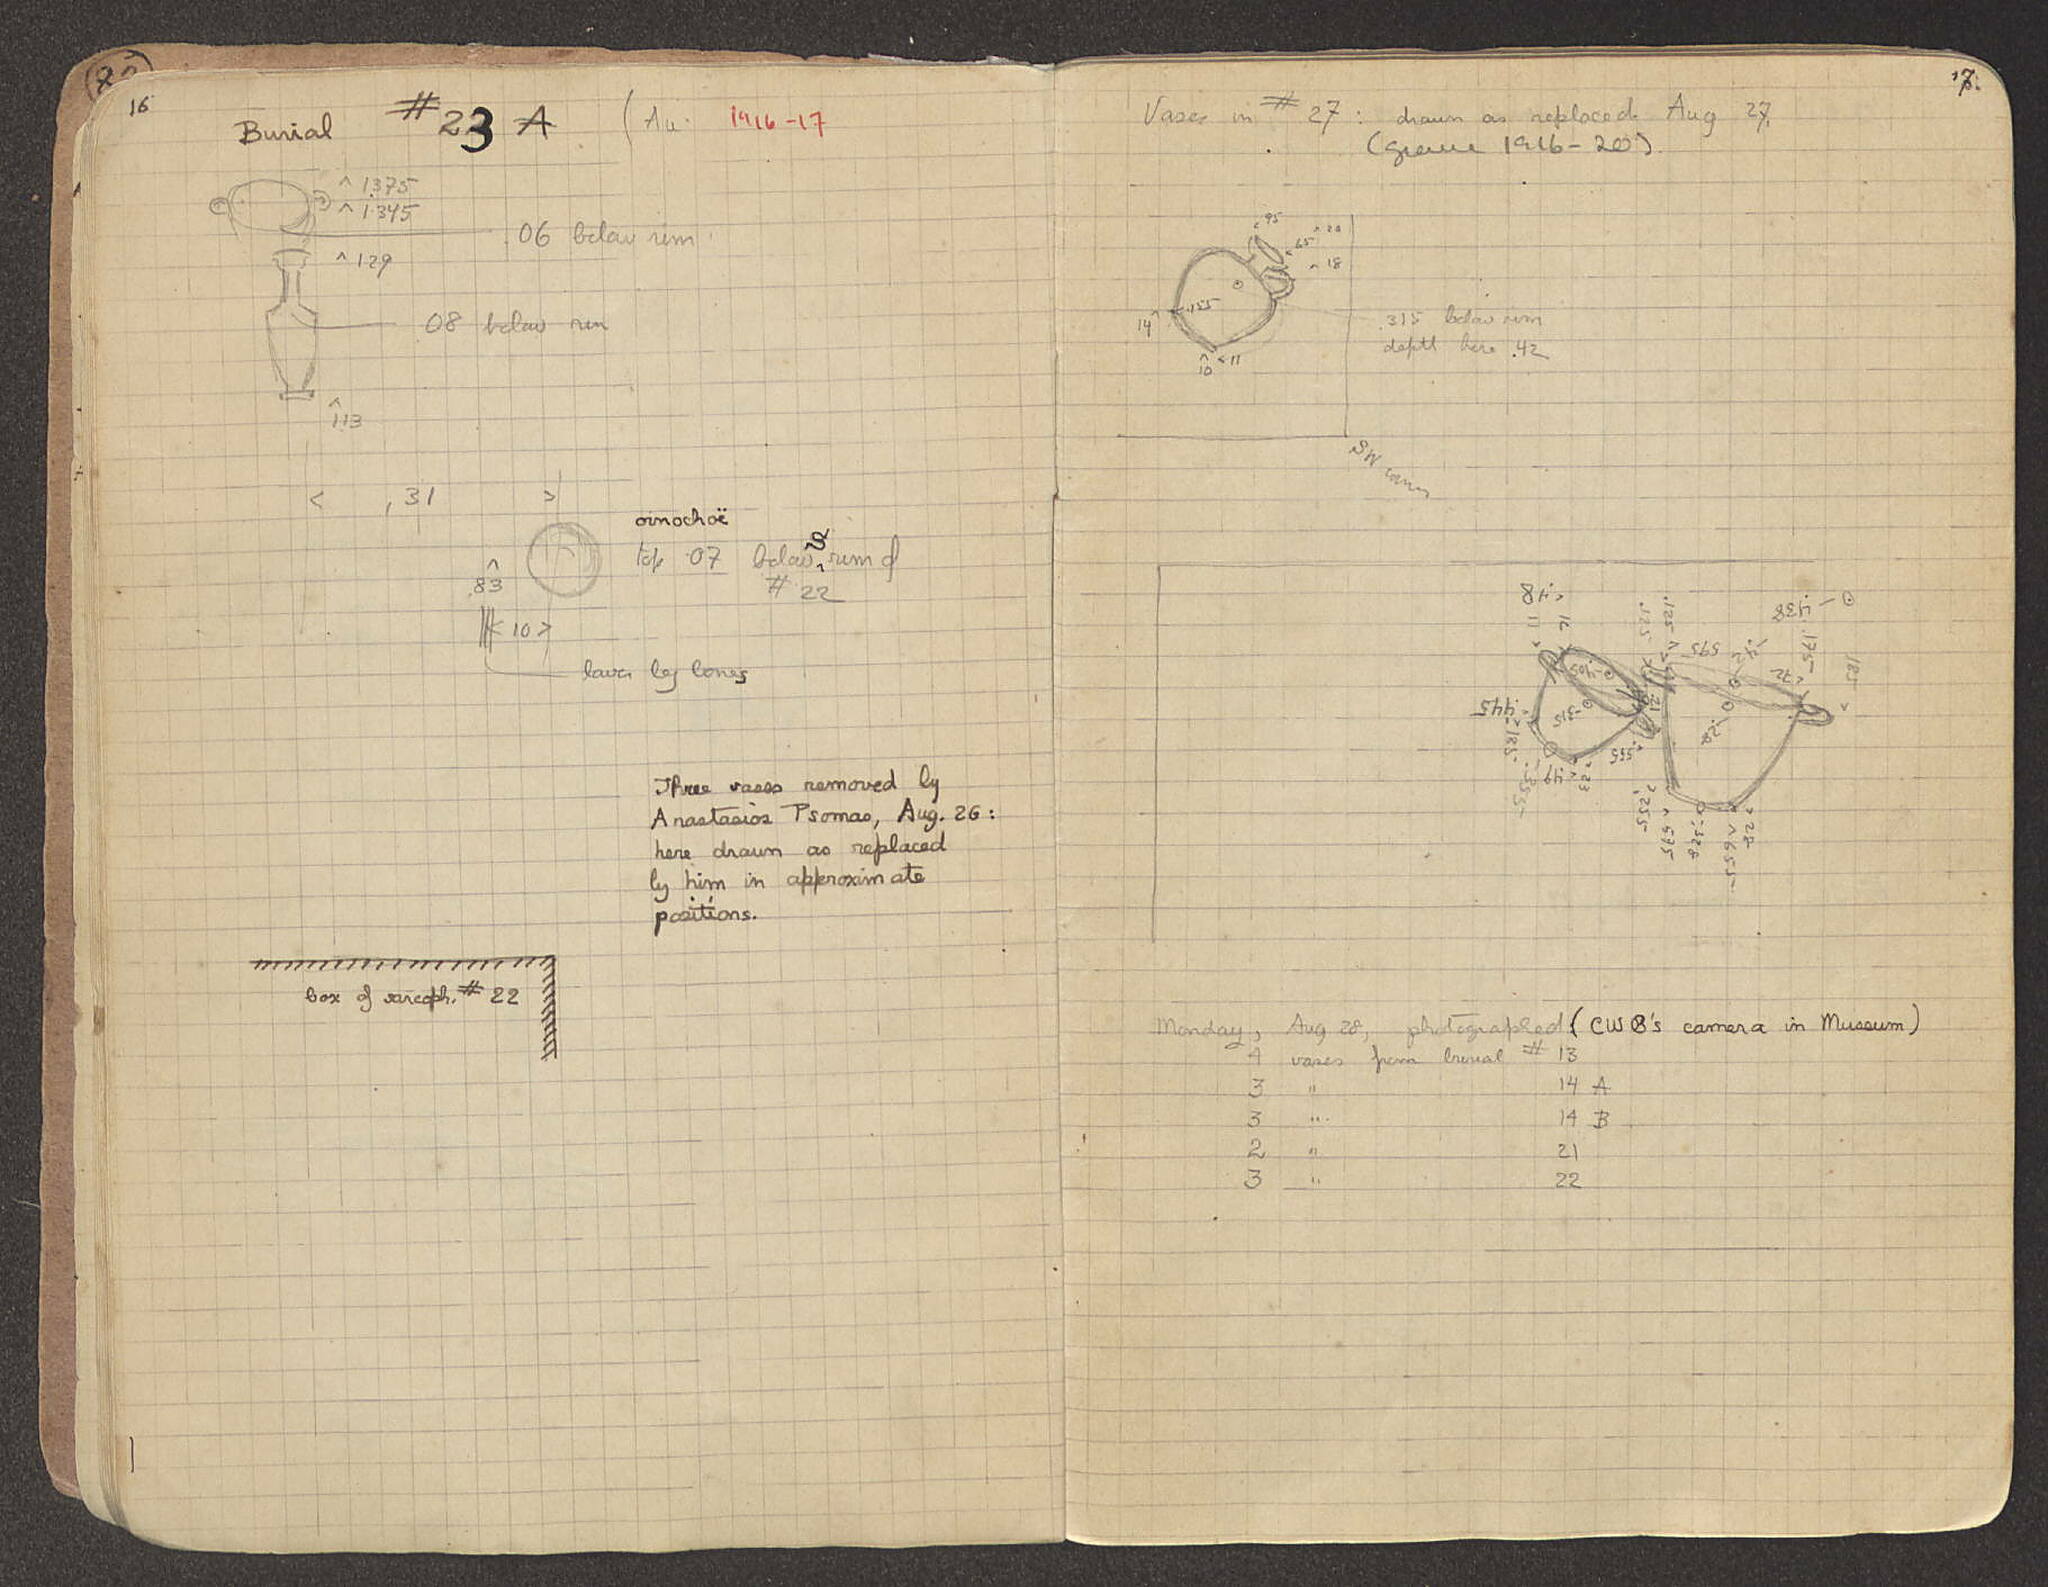 16
Burial #23 A
1916-17
^ 1.375
^ 1.345
.06 below rim
^ 1.29
.08 below rim
^ 1.13
< .31 >
oinochoë
top .07 below S rim of
# 22
^ .83
< 10 >
lower leg bones
Three vases removed by
Anastasios Psomas, Aug. 26:
here drawn as replaced
by him in approximate
positions.
box of sarcoph. # 22
17.
Vases in # 27: drawn as replaced Aug 27.
(Grave 1916-20)
< 95
^ 20
< 65
^ 18
< .155
14 ^
^ 10 < 11
.315 below rim
depth here .42
SW corner
^ .48
11
12
.125
.125
.595
.438
.175
.185
.72
.105
.315
.445
.185
.355
.49
.23
.555
.21
.29
.525
.575
.328
.655
.22
Monday, Aug 28, photographed (CWB's camera in Museum)
4 vases from burial # 13
3 " 14 A
3 " 14 B
2 " 21
3 " 22